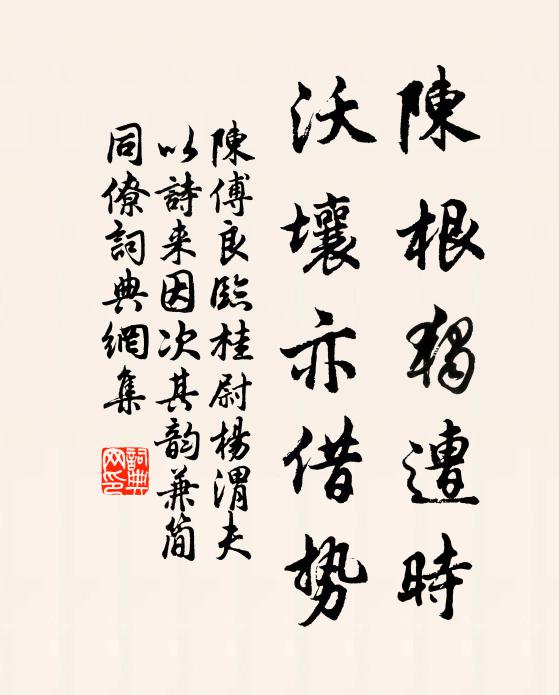 陳根獨遭時
沃壤亦借勢
陳傅良臨桂尉楊渭夫
以詩来因次其韵兼简
同僚詞典網集
詞典网印